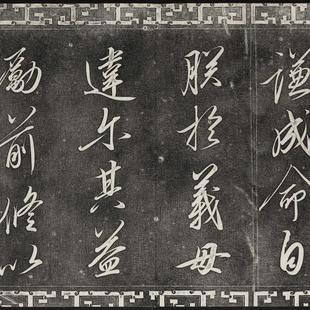 謙成命自
朕於義毋
違尔其益
勵前修以